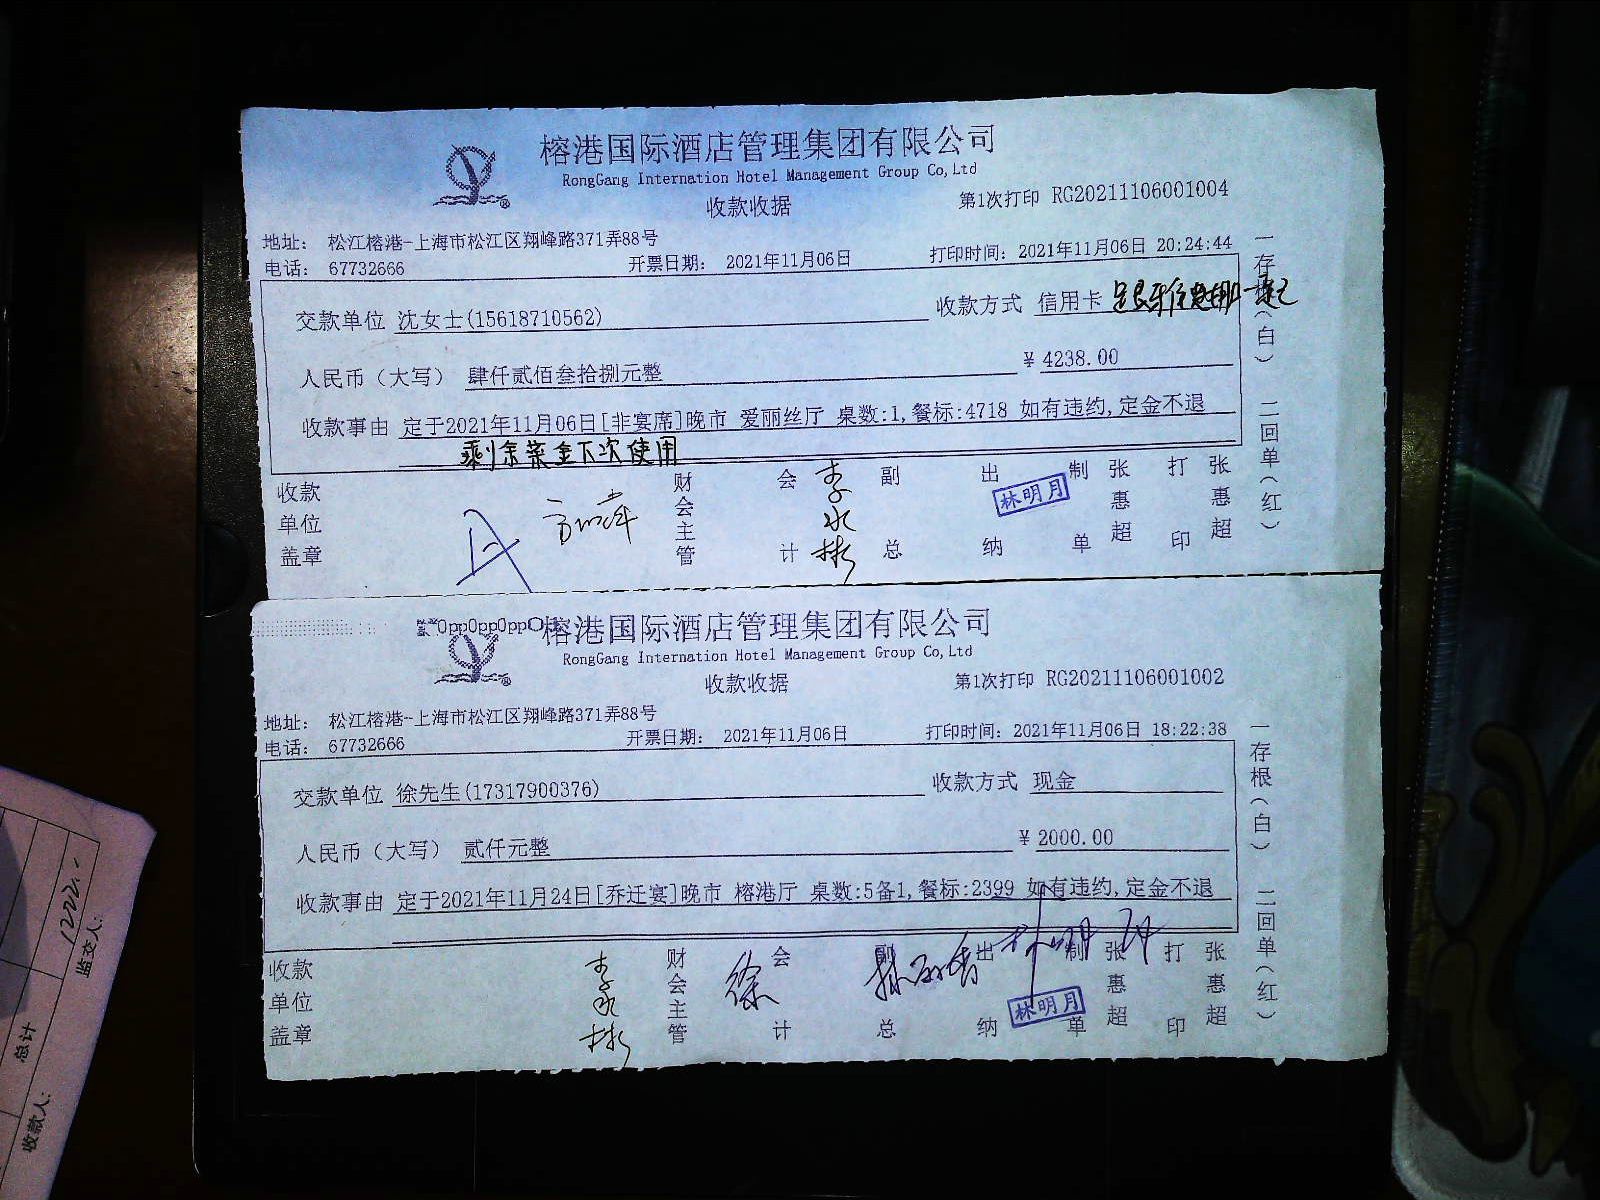 榕港国际酒店管理集团有限公司
RongGang Internation Hotel Management Group Co,Ltd
收款收据
第1次打印 RG20211106001004
地址： 松江榕港-上海市松江区翔峰路371弄88号
电话： 67732666
开票日期： 2021年11月06日
打印时间：2021年11月06日 20:24:44
交款单位 沈女士(15618710562)
收款方式 信用卡
人民币（大写） 肆仟贰佰叁拾捌元整
￥4238.00
收款事由 定于2021年11月06日[非宴席]晚市 爱丽丝厅 桌数:1,餐标:4718 如有违约,定金不退
剩余菜金下次使用
一存根(白) 二回单(红)
收款单位盖章
财会主管
会计
李永彬
副总
出纳
林明月
制单
张惠超
打印
张惠超
榕港国际酒店管理集团有限公司
RongGang Internation Hotel Management Group Co,Ltd
收款收据
第1次打印 RG20211106001002
地址： 松江榕港-上海市松江区翔峰路371弄88号
电话： 67732666
开票日期： 2021年11月06日
打印时间：2021年11月06日 18:22:38
交款单位 徐先生(17317900376)
收款方式 现金
人民币（大写） 贰仟元整
￥2000.00
收款事由 定于2021年11月24日[乔迁宴]晚市 榕港厅 桌数:5备1,餐标:2399 如有违约,定金不退
一存根(白) 二回单(红)
收款单位盖章
李永彬
财会主管
徐
会计
副总
出纳
林明月
林明月
制单
张惠超
打印
张惠超
监交人：
总计
收款人：